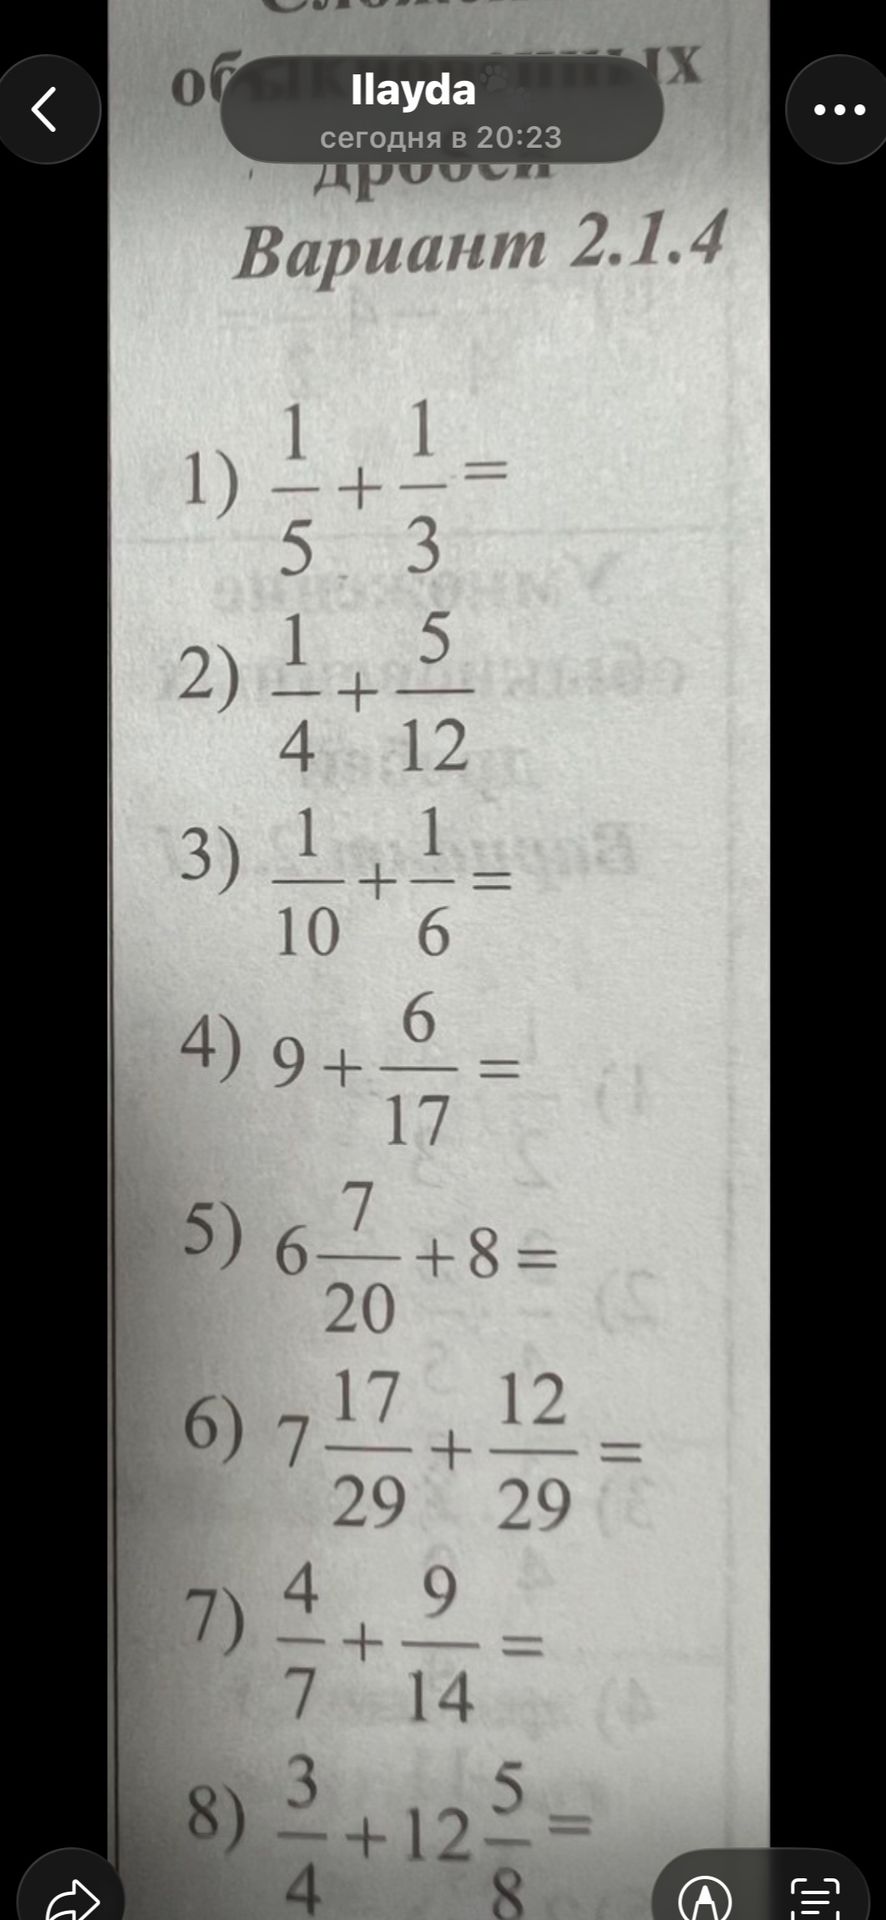 Ilayda
сегодня в 20:23
Вариант 2.1.4
1) 1/5 + 1/3 =
2) 1/4 + 5/12
3) 1/10 + 1/6 =
4) 9 + 6/17 =
5) 6 7/20 + 8 =
6) 7 17/29 + 12/29 =
7) 4/7 + 9/14 =
8) 3/4 + 12 5/8 =